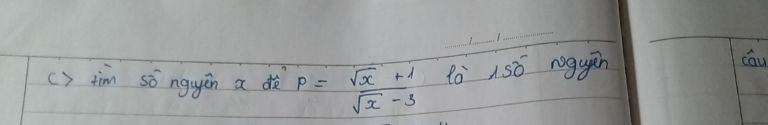 c> tìm số nguyên x để P = (√x + 1)/(√x - 3) là 1 số nguyên
câu